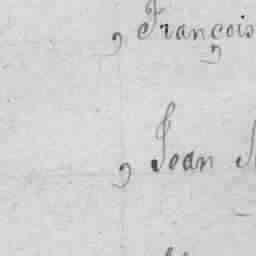 , François
, Jean